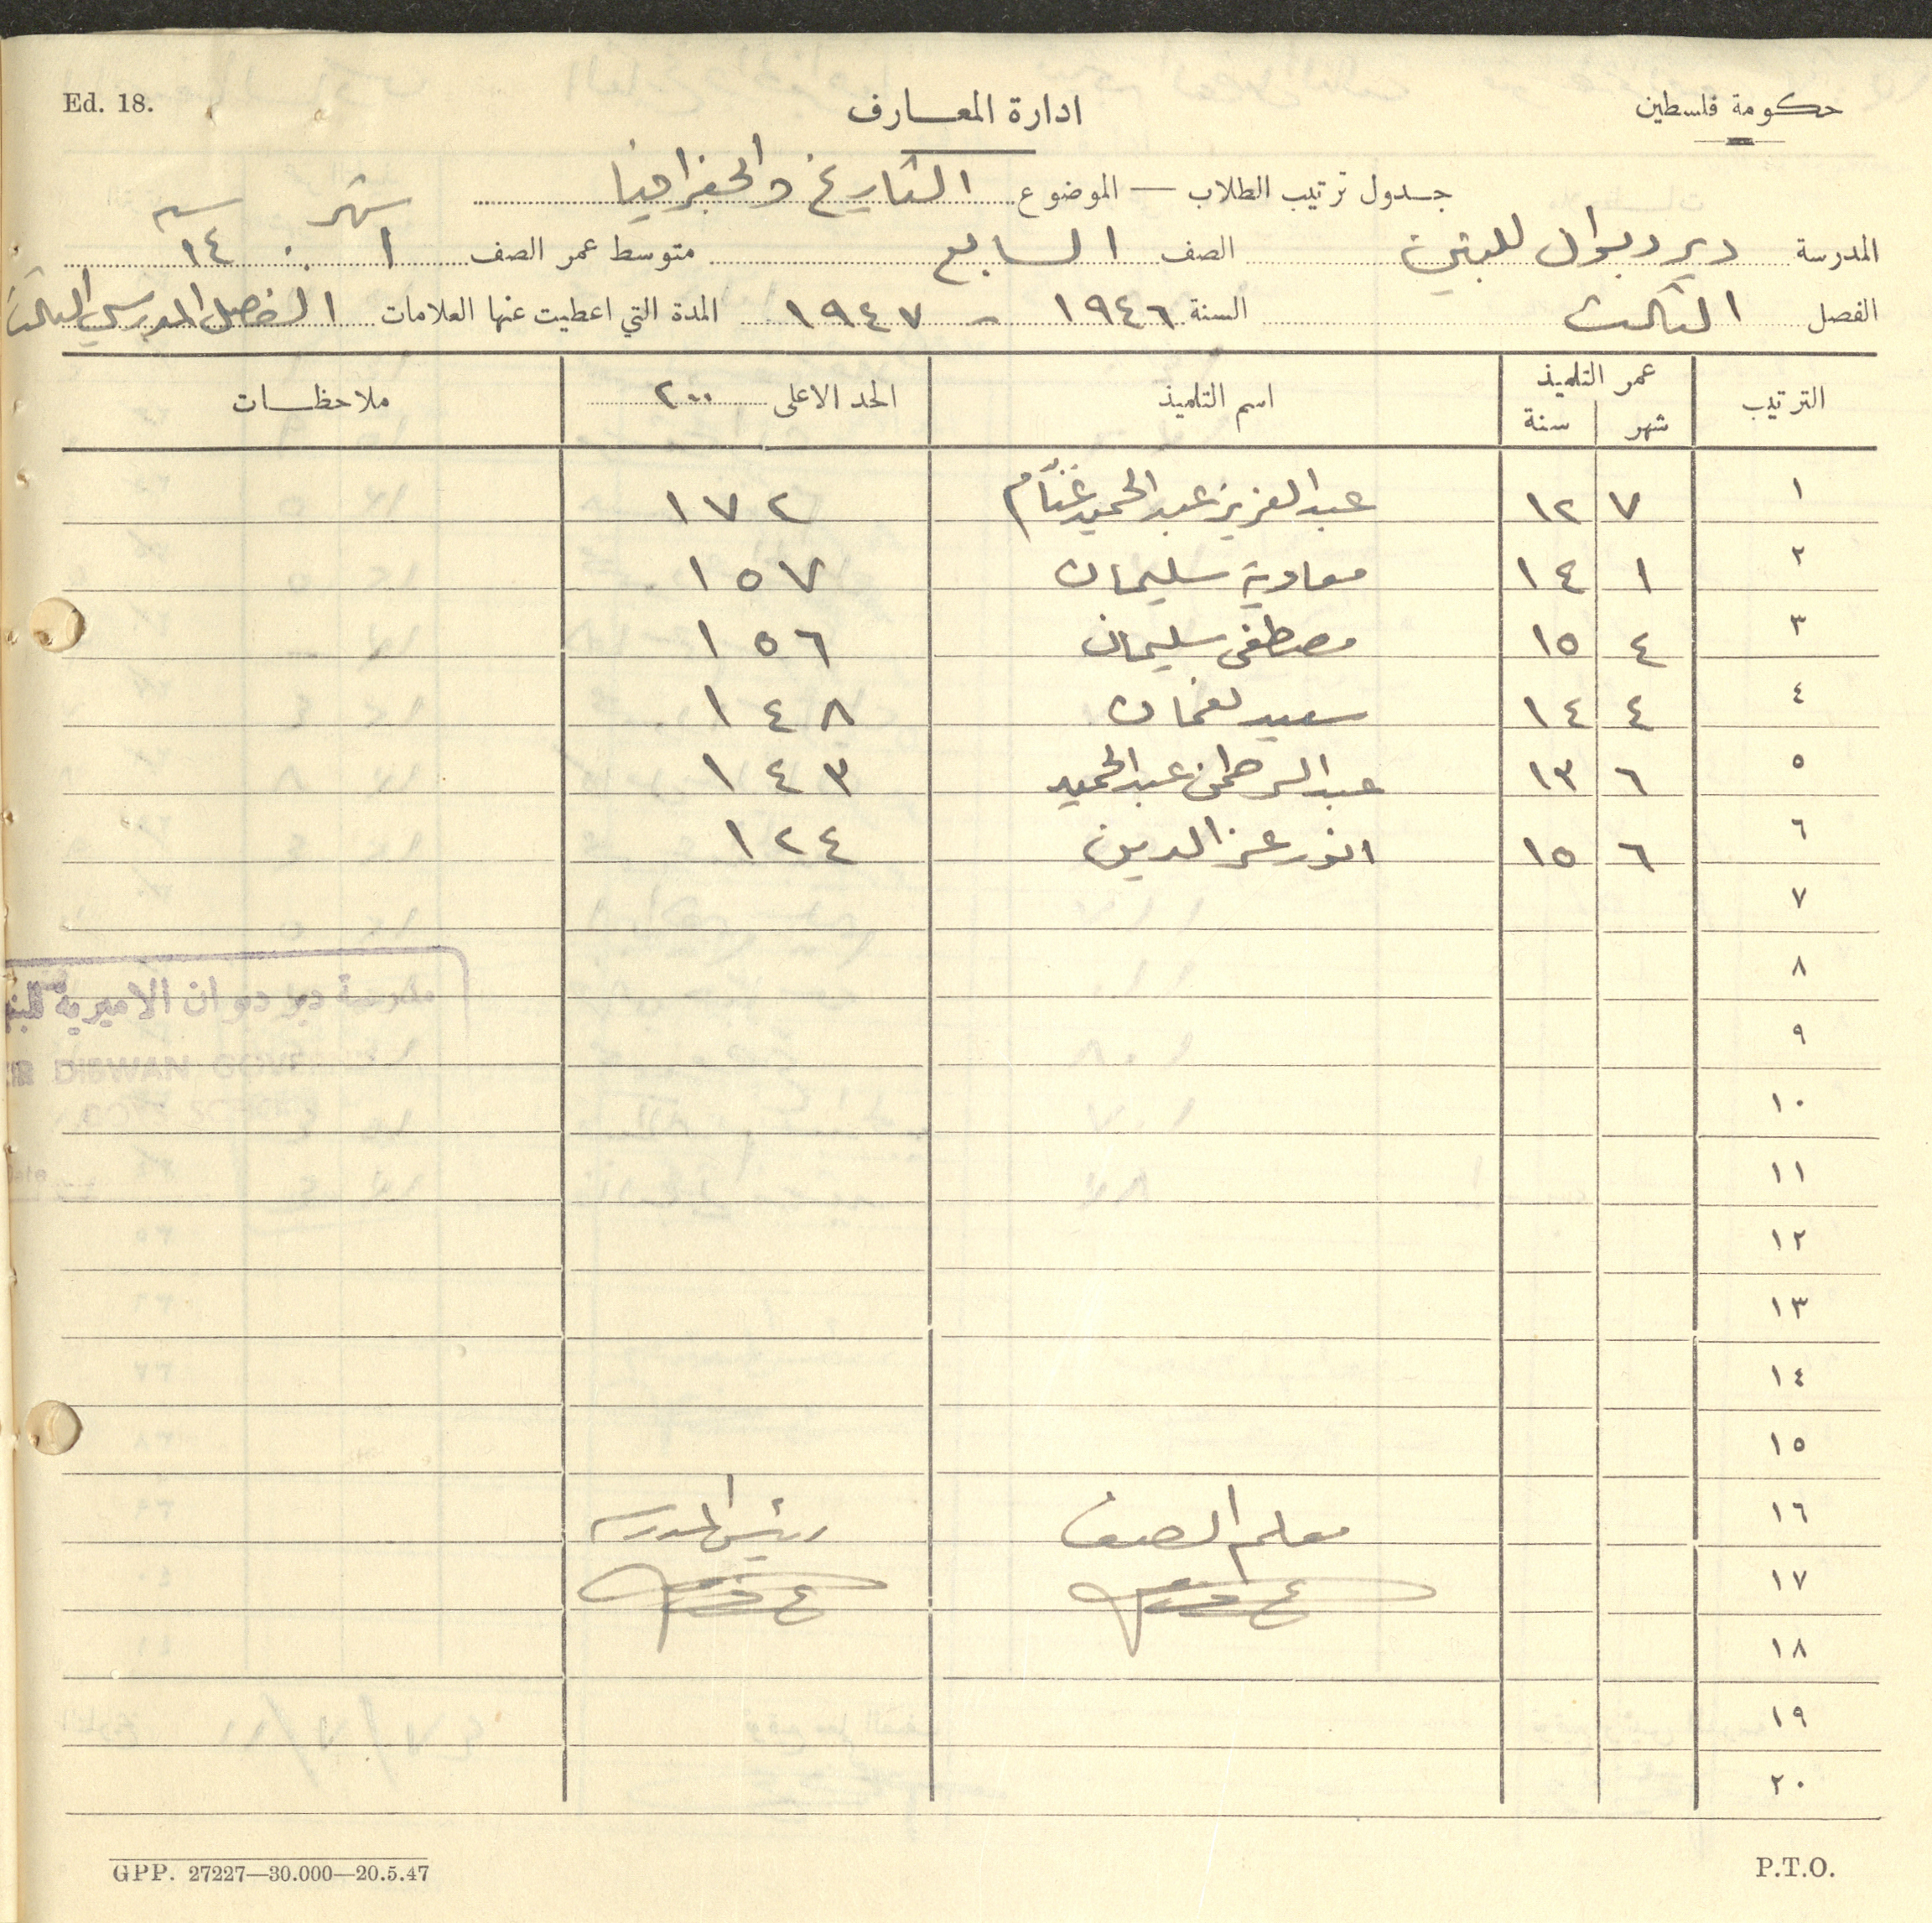 Ed. 18.
حكومة فلسطين
ادارة المعارف
جدول ترتيب الطلاب — الموضوع التاريخ والجغرافيا
شهر سنه
المدرسة دير دبوان للبنين الصف السابع متوسط عمر الصف ١ ١٤
الفصل الثالث السنة ١٩٤٦ - ١٩٤٧ المدة التي اعطيت عنها العلامات الفصل المدرسي الثالث
الترتيب عمر التلميذ اسم التلميذ الحد الاعلى ٢٠٠ ملاحظات
شهر سنة
١ ٧ ١٢ عبد العزيز عبد الحميد غنّام ١٧٢
٢ ١ ١٤ معاوية سليمان ١٥٧
٣ ٤ ١٥ مصطفى سليمان ١٥٦
٤ ٤ ١٤ سعيد نعمان ١٤٨
٥ ٦ ١٣ عبد الرحمن عبد الحميد ١٤٣
٦ ٦ ١٥ انور عز الدين ١٢٤
٧
٨
مدرسة دير دبوان الاميرية
٩
DIBWAN GOVT.
١٠
١١
١٢
١٣
١٤
١٥
١٦ معلم الصف رئيس المدرسه
١٧
١٨
١٩
٢٠
GPP. 27227—30.000—20.5.47
P.T.O.